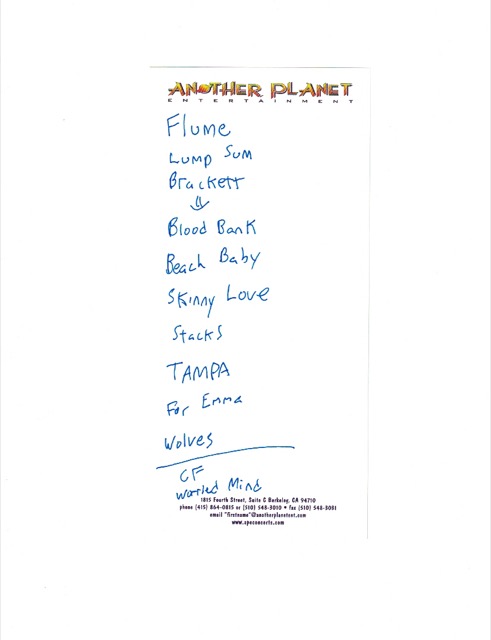 ANOTHER PLANET
ENTERTAINMENT
Flume
Lump Sum
Brackett
Blood Bank
Beach Baby
Skinny Love
Stacks
TAMPA
For Emma
Wolves
CF
Worried Mind
1815 Fourth Street, Suite C Berkeley, CA 94710
phone (415) 864-0815 or (510) 548-3010 • fax (510) 548-3051
email "firstname"@anotherplanetent.com
www.apeconcerts.com